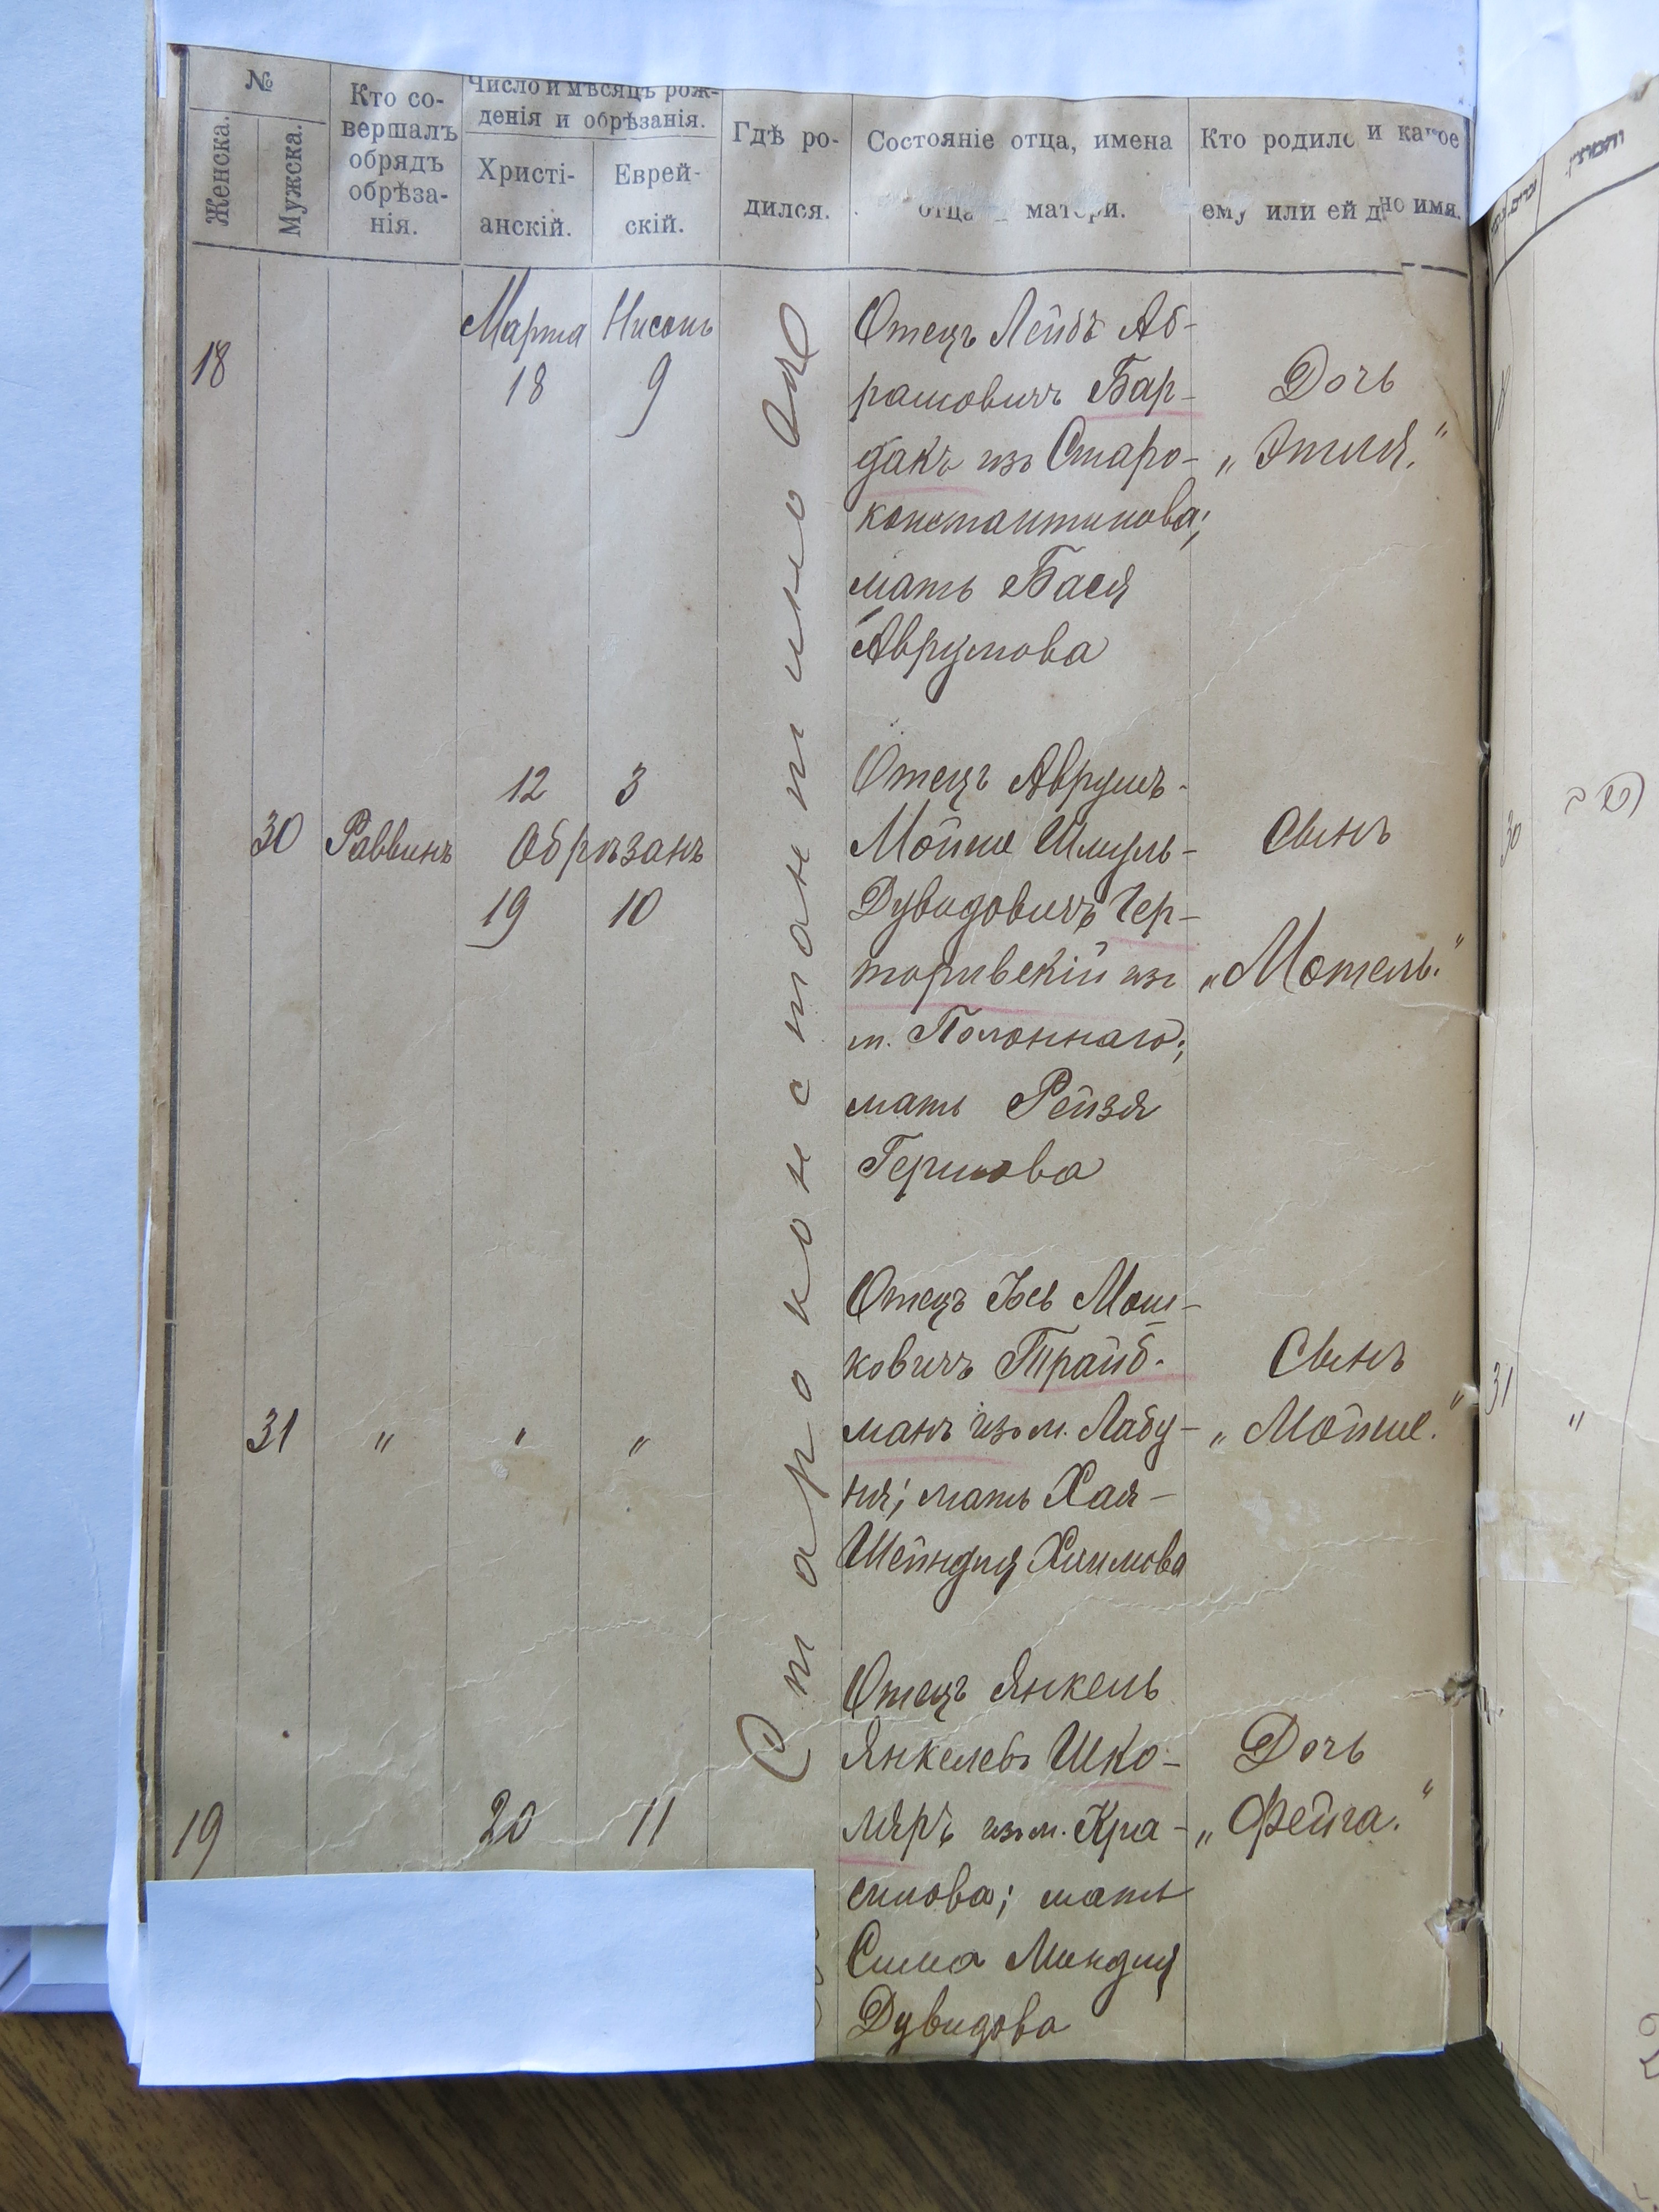 №
Женска.
Мужска.
Кто со-
вершалъ
обрядъ
обрѣза-
нія.
Число и мѣсяцъ рож-
денія и обрѣзанія.
Христі-
анскій.
Еврей-
скій.
Гдѣ ро-
дился.
Состояніе отца, имена
отца матери.
Кто родилс и какое
ему или ей дно имя.
Марта Нисонъ
18
18 9
Отецъ Лейбъ Аб-
рамовичъ Бар-
дакъ изъ Старо-
константинова;
мать Бася
Аврумова
Дочь
„Этля."
12 3
30 Раввинъ Обрѣзанъ
19 10
Отецъ Аврумъ-
Мойше Шмуль-
Дувидовичъ Чер-
торивскій изъ
м. Полоннаго;
мать Рейзя
Гершова
Сынъ
„Мотель."
31 " " "
Отецъ Іось Мош-
ковичъ Трайб-
манъ изъ м. Лабу-
ня; мать Хая-
Шейндля Хаимова
Сынъ
„Мойше."
19 20 11
Отецъ Янкель
Янкелевъ Шко-
ляръ изъ м. Кра-
силова; мать
Сима Миндля
Дувидова
Дочь
„Фейга."
Староконстантиново
30
31
"